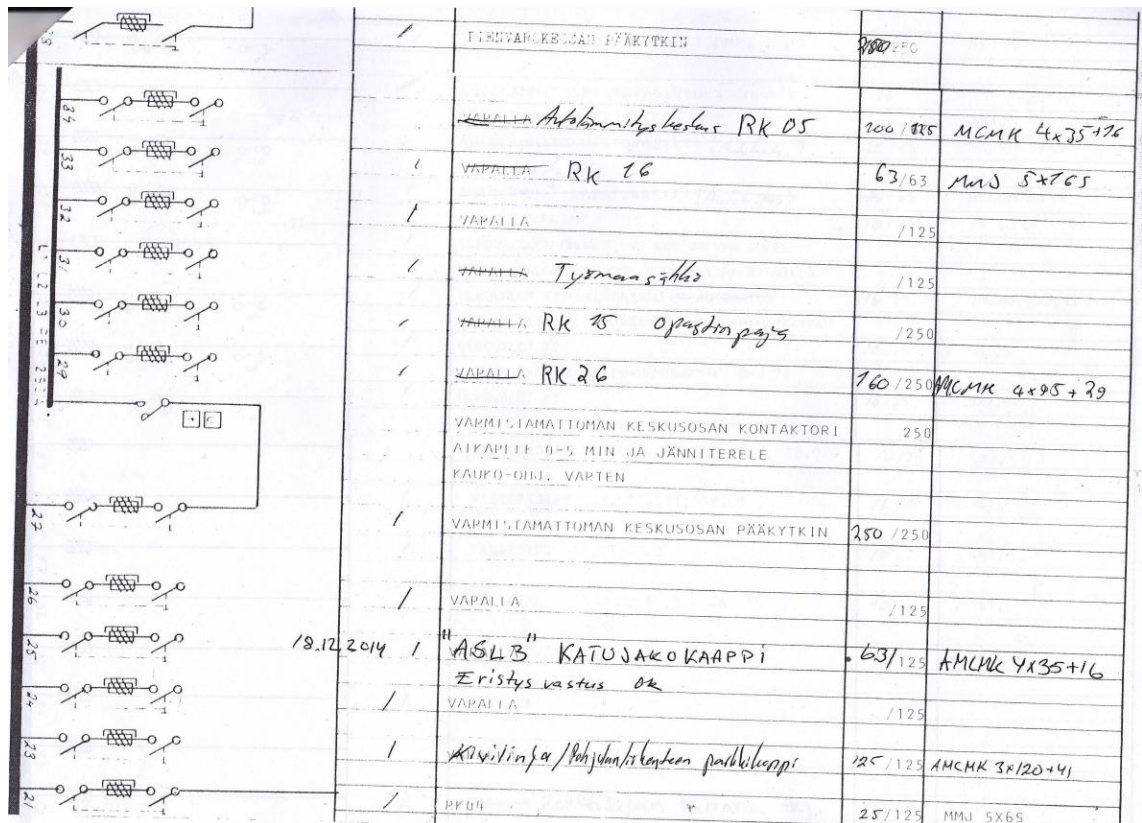 28 / PÄÄKYTKIN /250
34 VAPALLA Autolämmityskeskus RK 05 100/125 MCMK 4x35+16
33 / VAPALLA RK 16 63/63 MMJ 5x16S
32 / VAPALLA /125
31 / VAPALLA Työmaasähkö /125
30 / VAPALLA RK 15 Opastinpaja /250
29 / VAPALLA RK 26 160/250 AMCMK 4x95+29
VARMISTAMATTOMAN KESKUSOSAN KONTAKTORI 250
0-5 MIN JA JÄNNITERELE
KAUKO-OHJ. VARTEN
27 / VARMISTAMATTOMAN KESKUSOSAN PÄÄKYTKIN 250/250
26 / VAPALLA /125
25 18.12.2014 / "ASLB" KATUJAKOKAAPPI 63/125 AMCMK 4X35+16
Eristys vastus ok
24 / VAPALLA /125
23 / Kivilinja/Pohjolanliikenteen parkkikaappi 125/125 AMCMK 3x120+41
21 / RK04 25/125 MMJ 5X6S